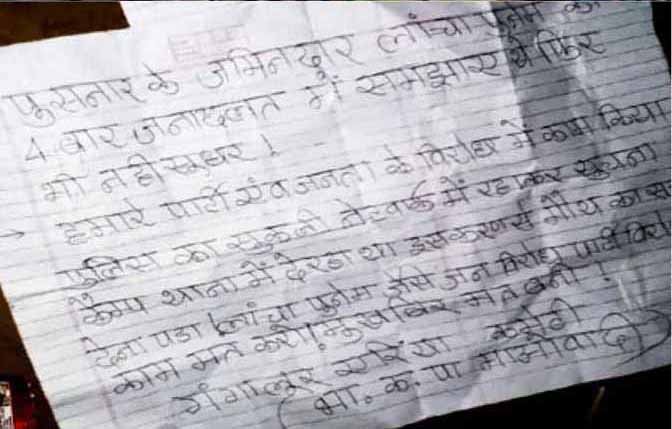 पुसनार के जमिनदार लांचा पुनेम को
4 बार जनादलत में समझाए थे फिर
भी नही सुधरा !
→ हमारे पार्टी एंव जनता के विरोध में काम किया
पुलिस का नेटवर्क में रहाकर सुचना
कैम्प थाना में देरहा था इसकरण से मौथ का सजा
देना पडा ! लांचा पुनेम जैसे जन विरोध पार्टी विरोध
काम मत करो ! मुखबिर मत बनो !
गंगालुर एरिया कमेटी
(भा. क. पा माओवादी)